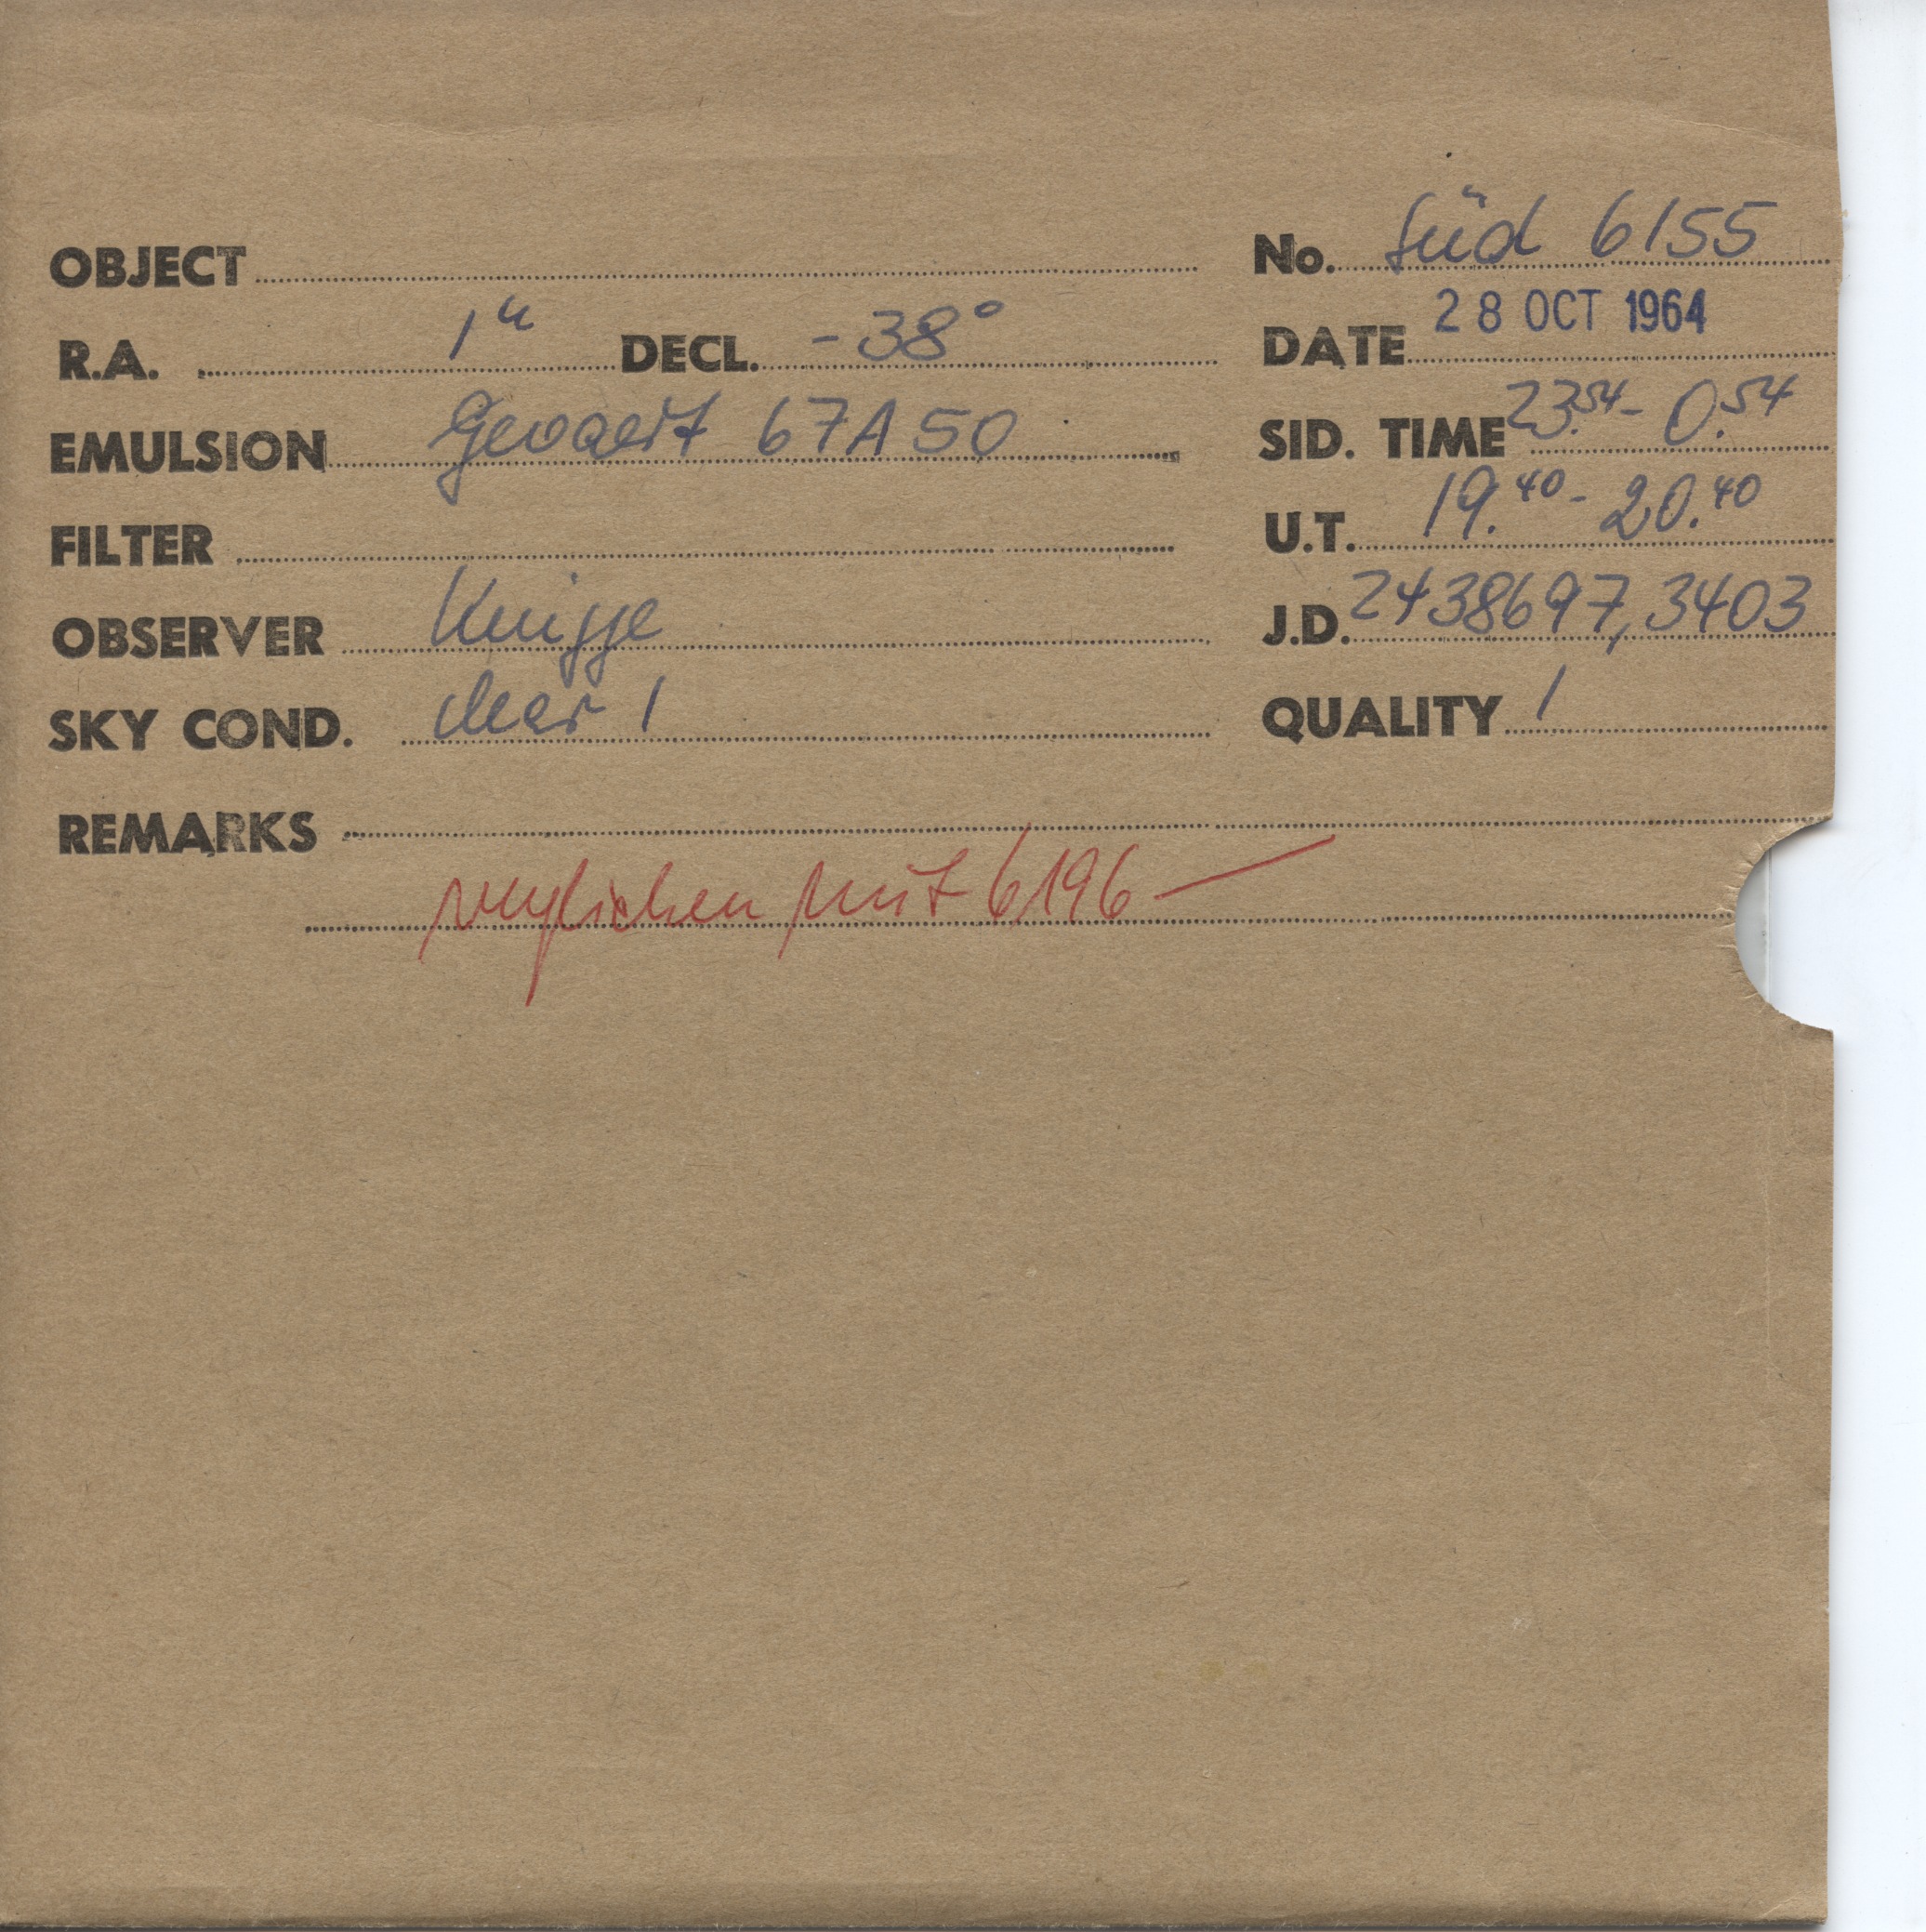 OBJECT No. Süd 6155
R.A. 1ʰ DECL. -38° DATE 28 OCT 1964
EMULSION Gevaert 67A50 SID. TIME 23.54 - 0.54
FILTER U.T. 19.40 - 20.40
OBSERVER Knigge J.D. 2438697,3403
SKY COND. clear 1 QUALITY 1
REMARKS
verglichen mit 6196 —